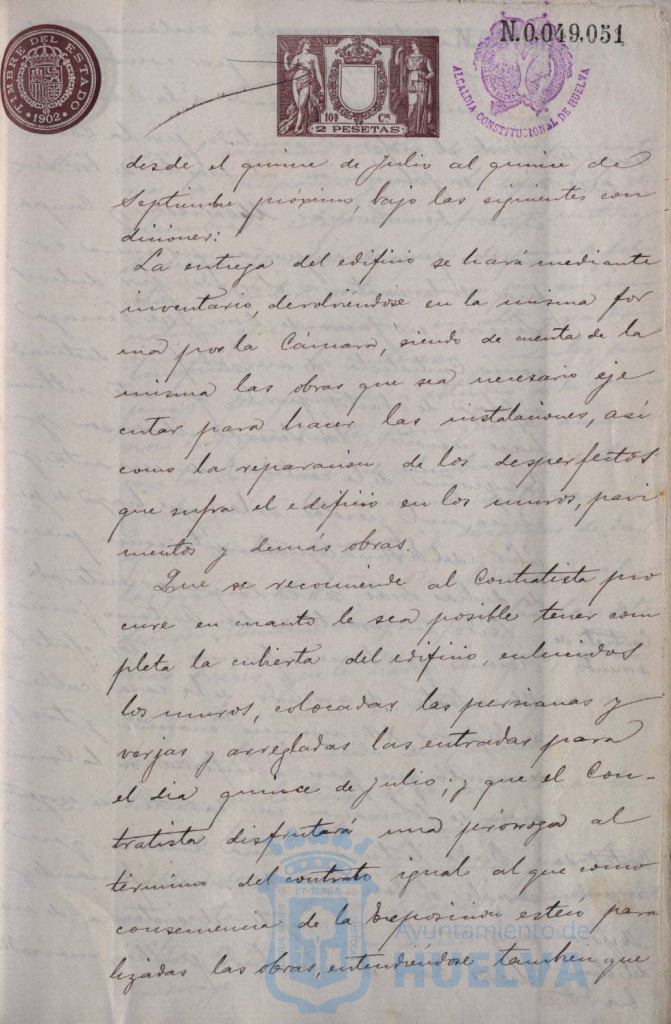 TIMBRE DEL ESTADO
1902
AÑO 1902
10ª Cª
2 PESETAS
N.0.049.051
ALCALDIA CONSTITUCIONAL DE HUELVA
desde el quince de Julio al quince de
Septiembre próximo, bajo las siguientes con
diciones:
La entrega del edificio se hará mediante
inventario, devolviéndose en la misma for
ma por la Cámara, siendo de cuenta de la
misma las obras que sea necesario eje
cutar para hacer las instalaciones, así
como la reparacion de los desperfectos
que sufra el edificio en los muros, pavi
mentos y demás obras.
Que se recomiende al Contratista pro
cure en cuanto le sea posible tener com
pleta la cubierta del edificio, enlucidos
los muros, colocadas las persianas y
verjas y arregladas las entradas para
el dia quince de Julio; y que el Con-
tratista disfrutará una prórroga al
término del contrato igual al que como
consecuencia de la Exposicion esten para
lizadas las obras, entendiéndose tambien que
Ayuntamiento de
HUELVA